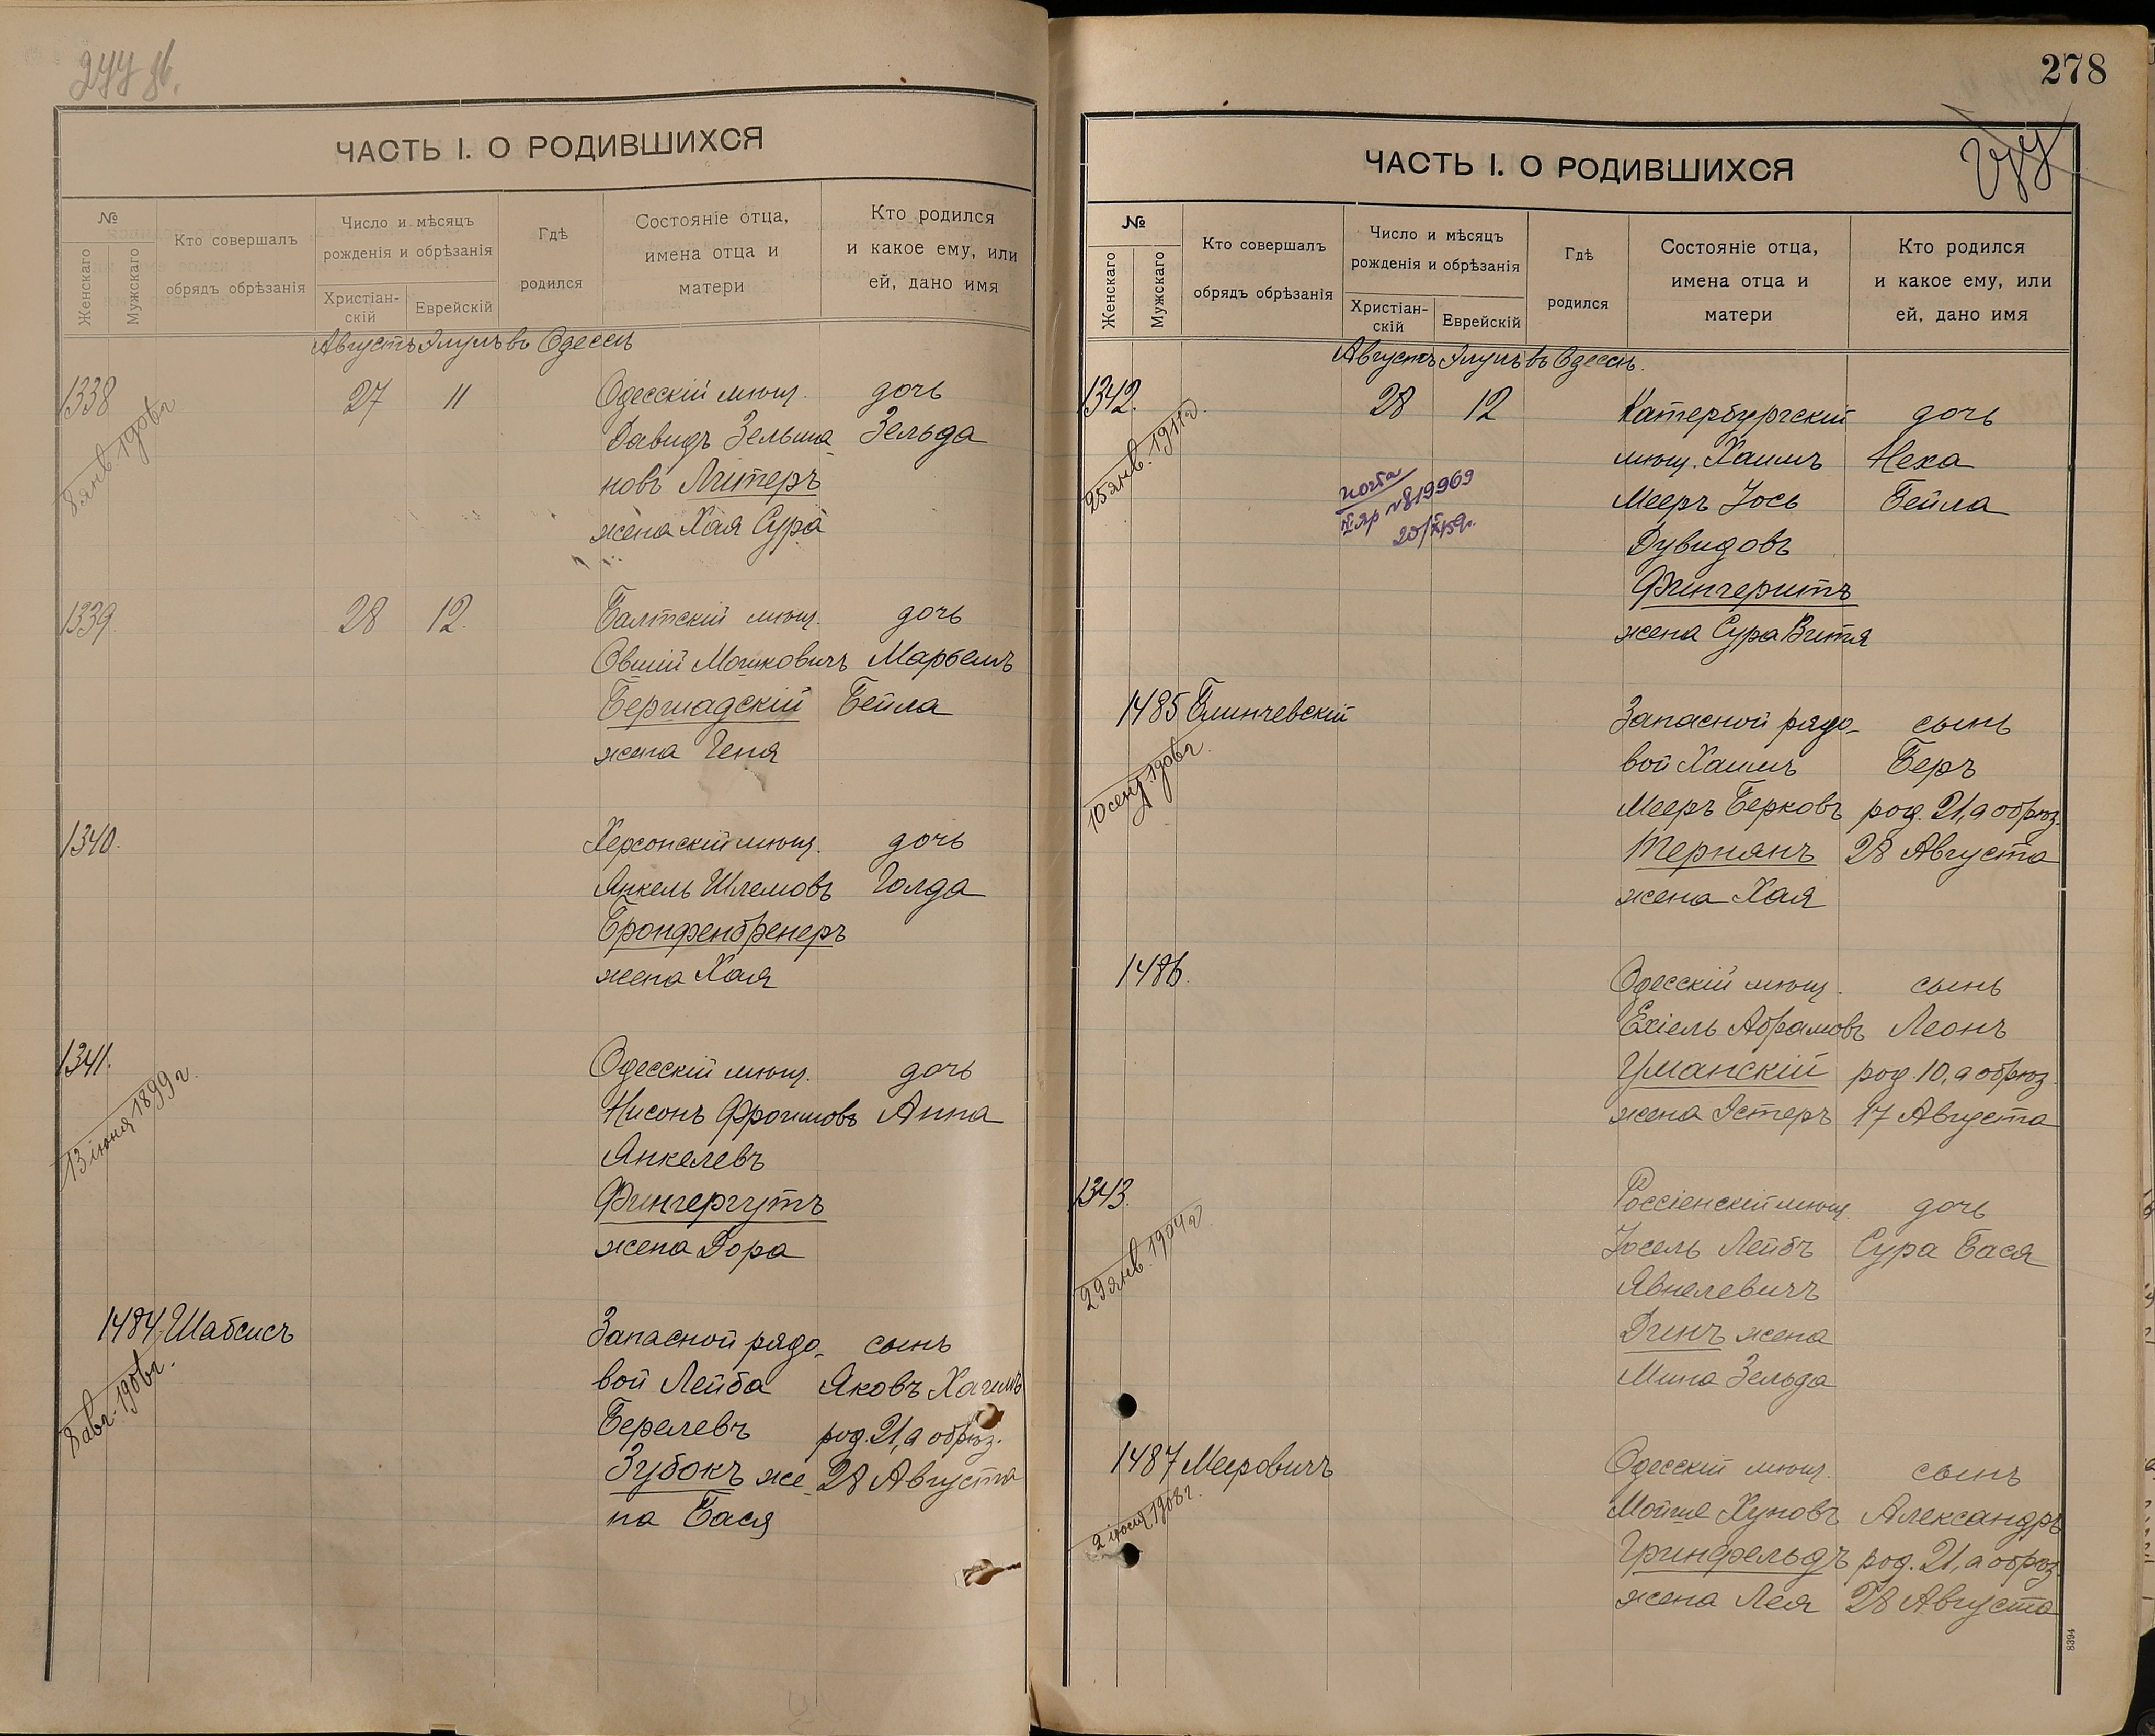 277 об.
ЧАСТЬ I. О РОДИВШИХСЯ
№
Женскаго
Мужскаго
Кто совершалъ
обрядъ обрѣзанія
Число и мѣсяцъ
рожденія и обрѣзанія
Христіан-
скій
Еврейскій
Гдѣ
родился
Состояніе отца,
имена отца и
матери
Кто родился
и какое ему, или
ей, дано имя
Августъ Элулъ въ Одессѣ
1338 27 11 Одесскій мѣщ. дочь
8 янв. 1906 г.
Давидъ Зельма- Зельда
новъ Литеръ
жена Хая Сура
1339. 28 12. Балтскій мѣщ. дочь
Овшій Мошковичъ Марбемъ
Бершадскій Бейла
жена Геня
1340. Херсонскій мѣщ. дочь
Янкель Шлемовъ Голда
Бронфенбренеръ
жена Хая
1341. Одесскій мѣщ. дочь
13 іюня 1899 г.
Нисонъ Фроимовъ Анна
Янкелевъ
Фингергутъ
жена Дора
1484 Шабсисъ Запасной рядо- сынъ
8 авг. 1906 г.
вой Лейба Яковъ Хаимъ
Берелевъ род. 21, а обрѣз.
Зубокъ же- 28 Августа
на Бася
278
277
ЧАСТЬ I. О РОДИВШИХСЯ
№
Женскаго
Мужскаго
Кто совершалъ
обрядъ обрѣзанія
Число и мѣсяцъ
рожденія и обрѣзанія
Христіан-
скій
Еврейскій
Гдѣ
родился
Состояніе отца,
имена отца и
матери
Кто родился
и какое ему, или
ей, дано имя
Августъ Элулъ въ Одессѣ.
1342. 28 12 Катербургскій дочь
25 янв. 1911 г.
мѣщ. Хаимъ Неха
Мееръ Іось Бейла
Дувидовъ
Фингеритъ
жена Сура Витя
№819969
1485 Блинчевскій Запасной рядо- сынъ
10 сент. 1906 г.
вой Хаимъ Беръ
Мееръ Берковъ род. 21, а обрѣз.
Тернянъ 28 Августа
жена Хая
1486. Одесскій мѣщ. сынъ
Ехіель Абрамовъ Леонъ
Уманскій род. 10, а обрѣз.
жена Эстеръ 17 Августа
1343. Россіенскій мѣщ. дочь
29 янв. 1904 г.
Іосель Лейбъ Сура Бася
Явнелевичъ
Динъ жена
Мина Зельда
1487 Мееровичъ Одесскій мѣщ. сынъ
2 1908 г.
Мойше Хуновъ Александръ
Гринфельдъ род. 21, а обрѣз.
жена Лея 28 Августа
8394